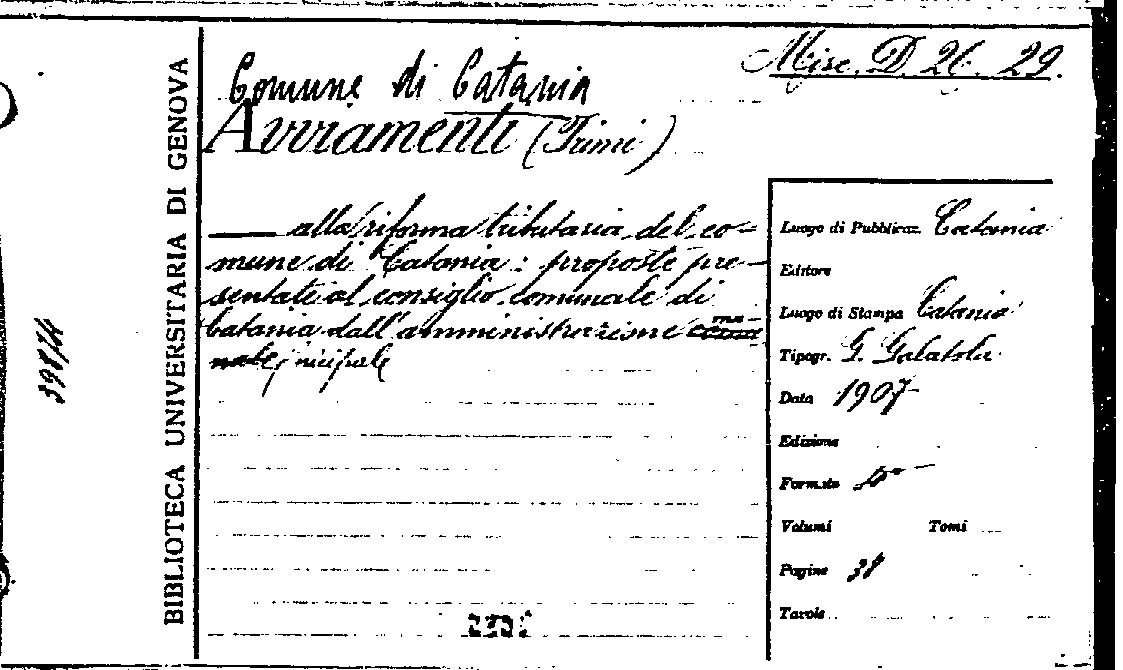 Misc. D. 26. 29.
Comune di Catania
Avviamenti (Primi)
BIBLIOTECA UNIVERSITARIA DI GENOVA
— alla riforma tributaria del co-
mune di Catania: proposte pre-
sentate al consiglio comunale di
Catania dall'amministrazione mu-
nicipale
Luogo di Pubblicaz. Catania
Editore
Luogo di Stampa Catania
Tipogr. G. Galatola
Data 1907
Edizione
Formato
Volumi Tomi
Pagine
Tavole